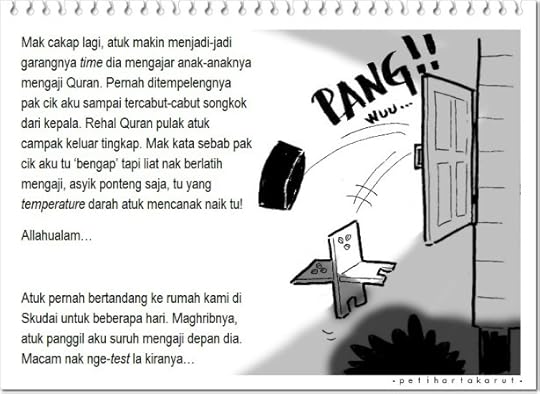 Mak cakap lagi, atuk makin menjadi-jadi
garangnya time dia mengajar anak-anaknya
mengaji Quran. Pernah ditempelengnya
pak cik aku sampai tercabut-cabut songkok
dari kepala. Rehal Quran pulak atuk
campak keluar tingkap. Mak kata sebab pak
cik aku tu ‘bengap’ tapi liat nak berlatih
mengaji, asyik ponteng saja, tu yang
temperature darah atuk mencanak naik tu!
Allahualam…
Atuk pernah bertandang ke rumah kami di
Skudai untuk beberapa hari. Maghribnya,
atuk panggil aku suruh mengaji depan dia.
Macam nak nge-test la kiranya…
PANG!!
WUU...
- p e t i h a r t a k a r u t -